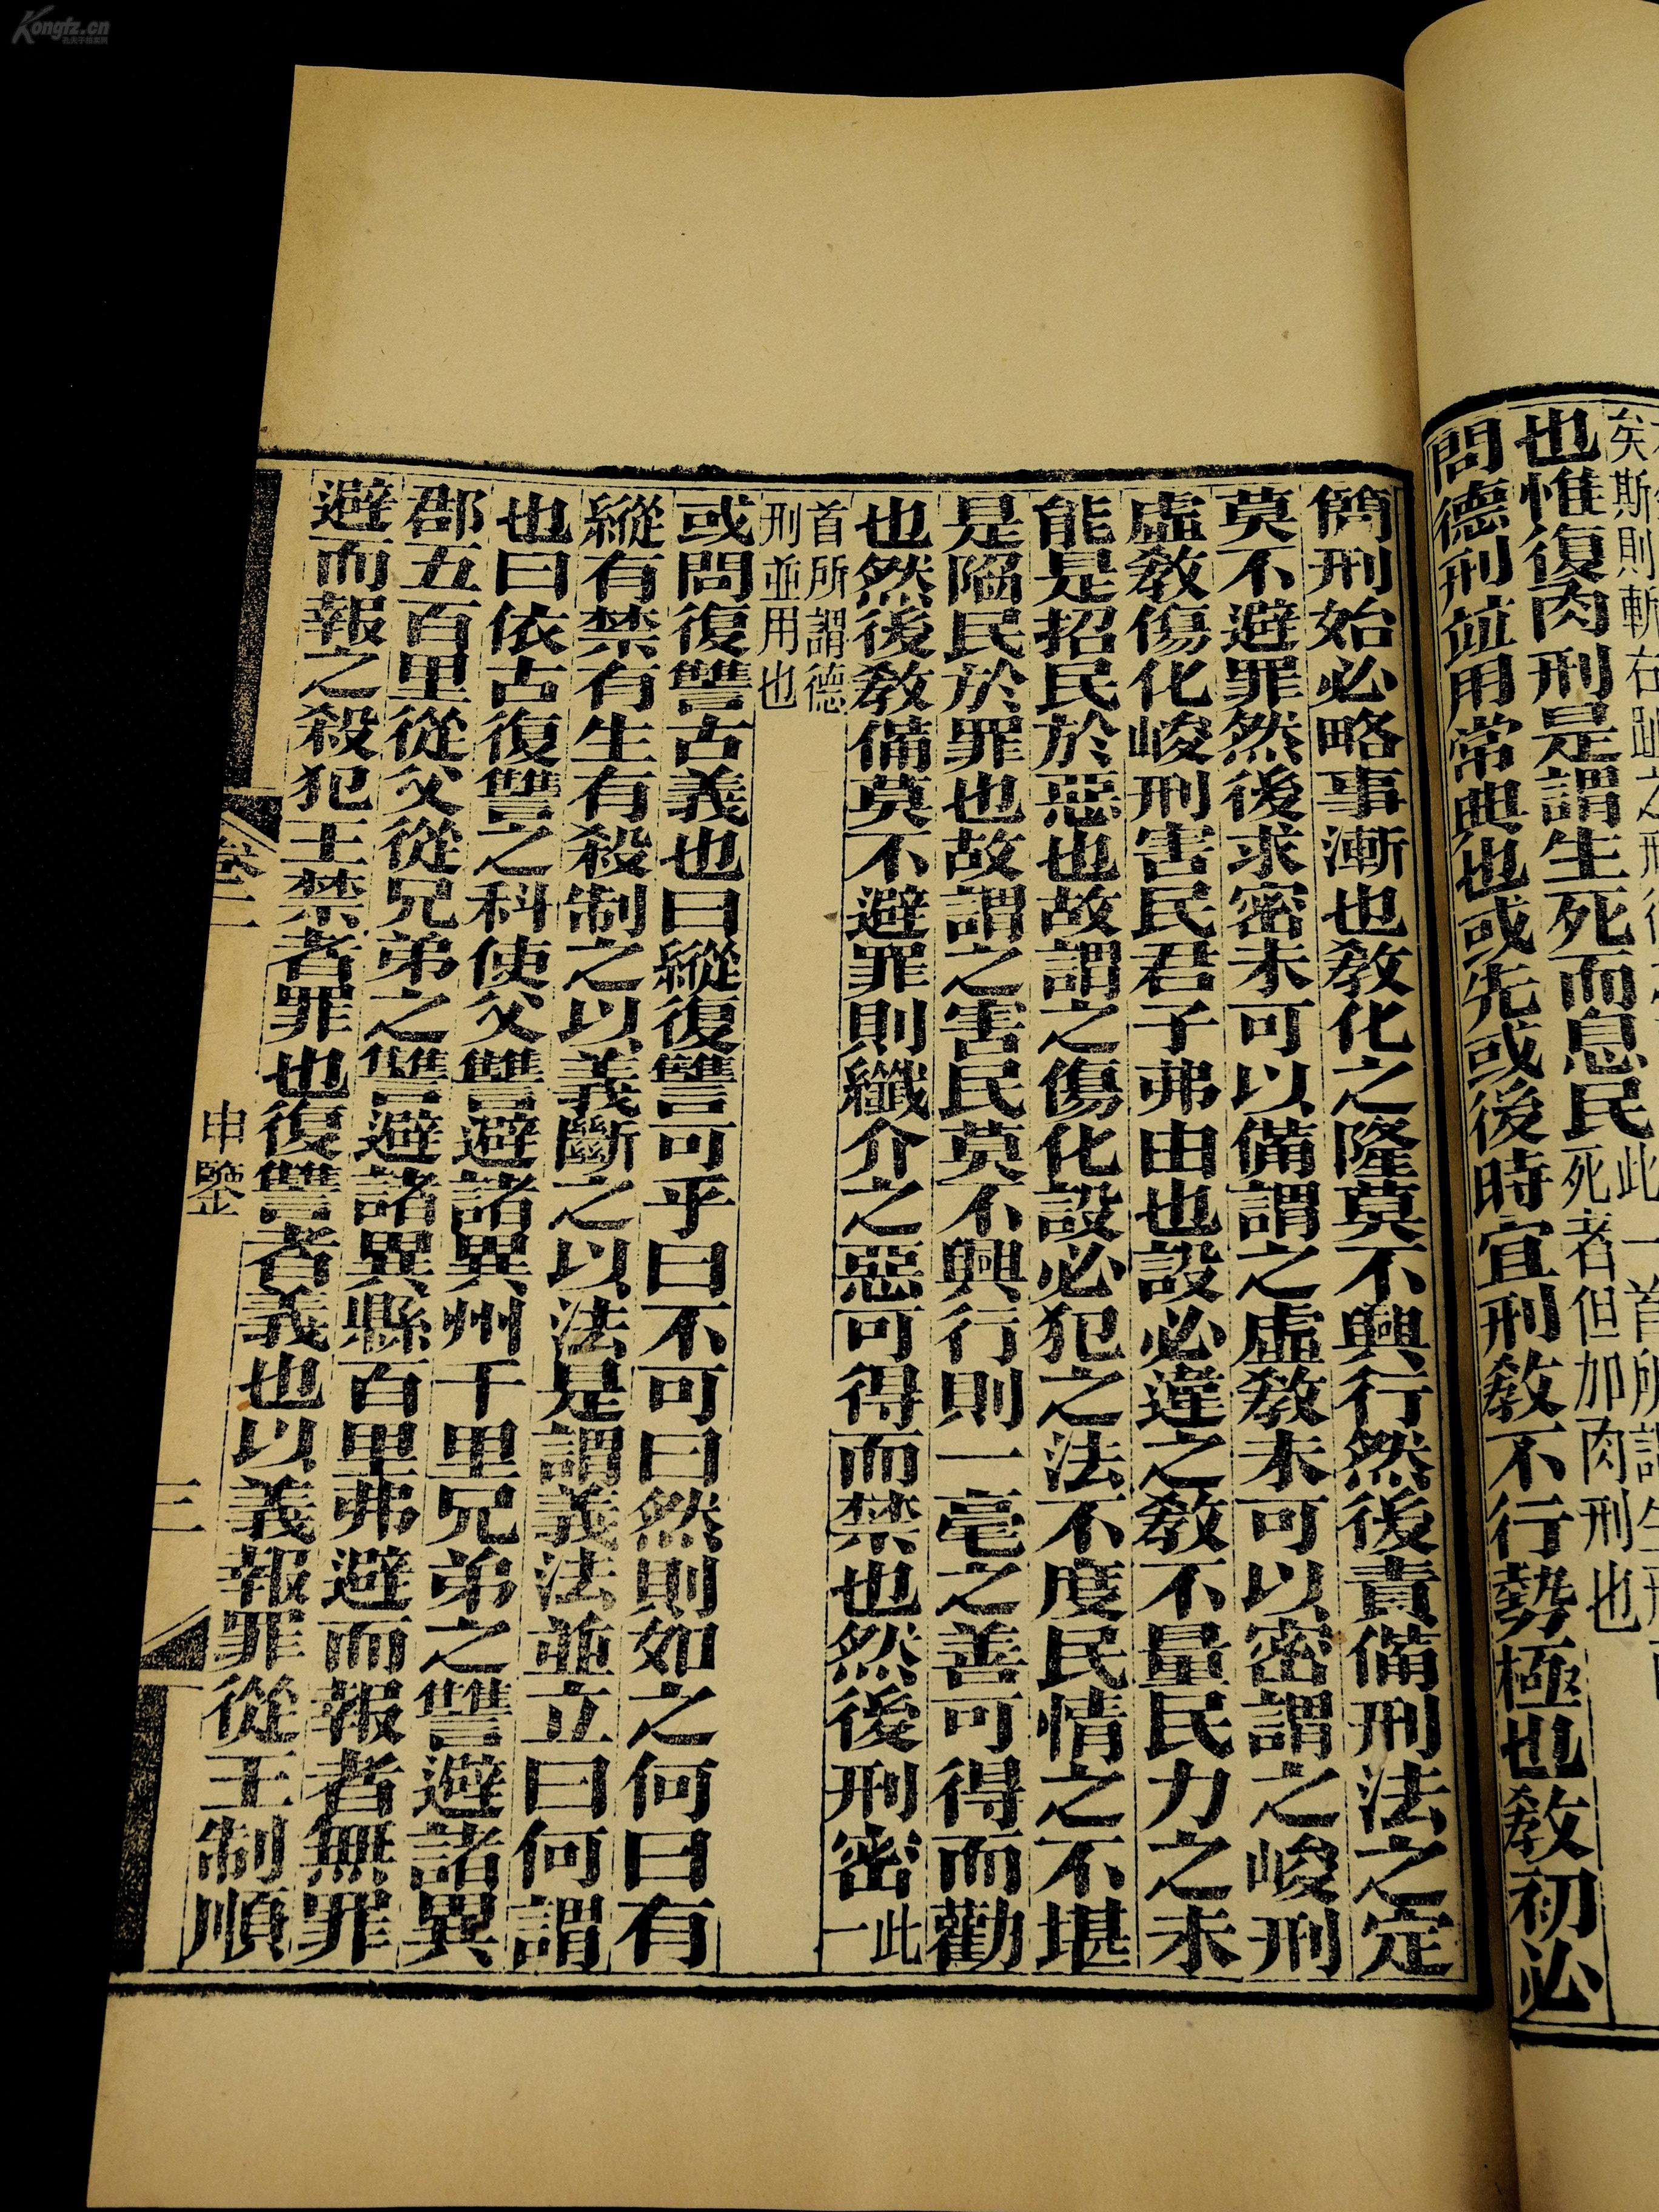 矣斯則斬右趾之刑
也惟復肉刑是謂生死而息民此一首所謂生刑
死者但加肉刑也
問德刑並用常典也或先或後時宜刑教不行勢極也教初必
簡刑始必略事漸也教化之隆莫不興行然後責備刑法之定
莫不避罪然後求密未可以備謂之虛教未可以密謂之峻刑
虛教傷化峻刑害民君子弗由也設必違之教不量民力之未
能是招民於惡也故謂之傷化設必犯之法不度民情之不堪
是陷民於罪也故謂之害民莫不興行則一毫之善可得而勸
也然後教備莫不避罪則纖介之惡可得而禁也然後刑密此一
首所謂德
刑並用也
或問復讐古義也曰縱復讐可乎曰不可曰然則如之何曰有
縱有禁有生有殺制之以義斷之以法是謂義法並立曰何謂
也曰依古復讐之科使父讐避諸異州千里兄弟之讐避諸異
郡五百里從父從兄弟之讐避諸異縣百里弗避而報者無罪
避而報之殺犯王禁者罪也復讐者義也以義報罪從王制順
卷二
申鑒
三
Kongfz.cn